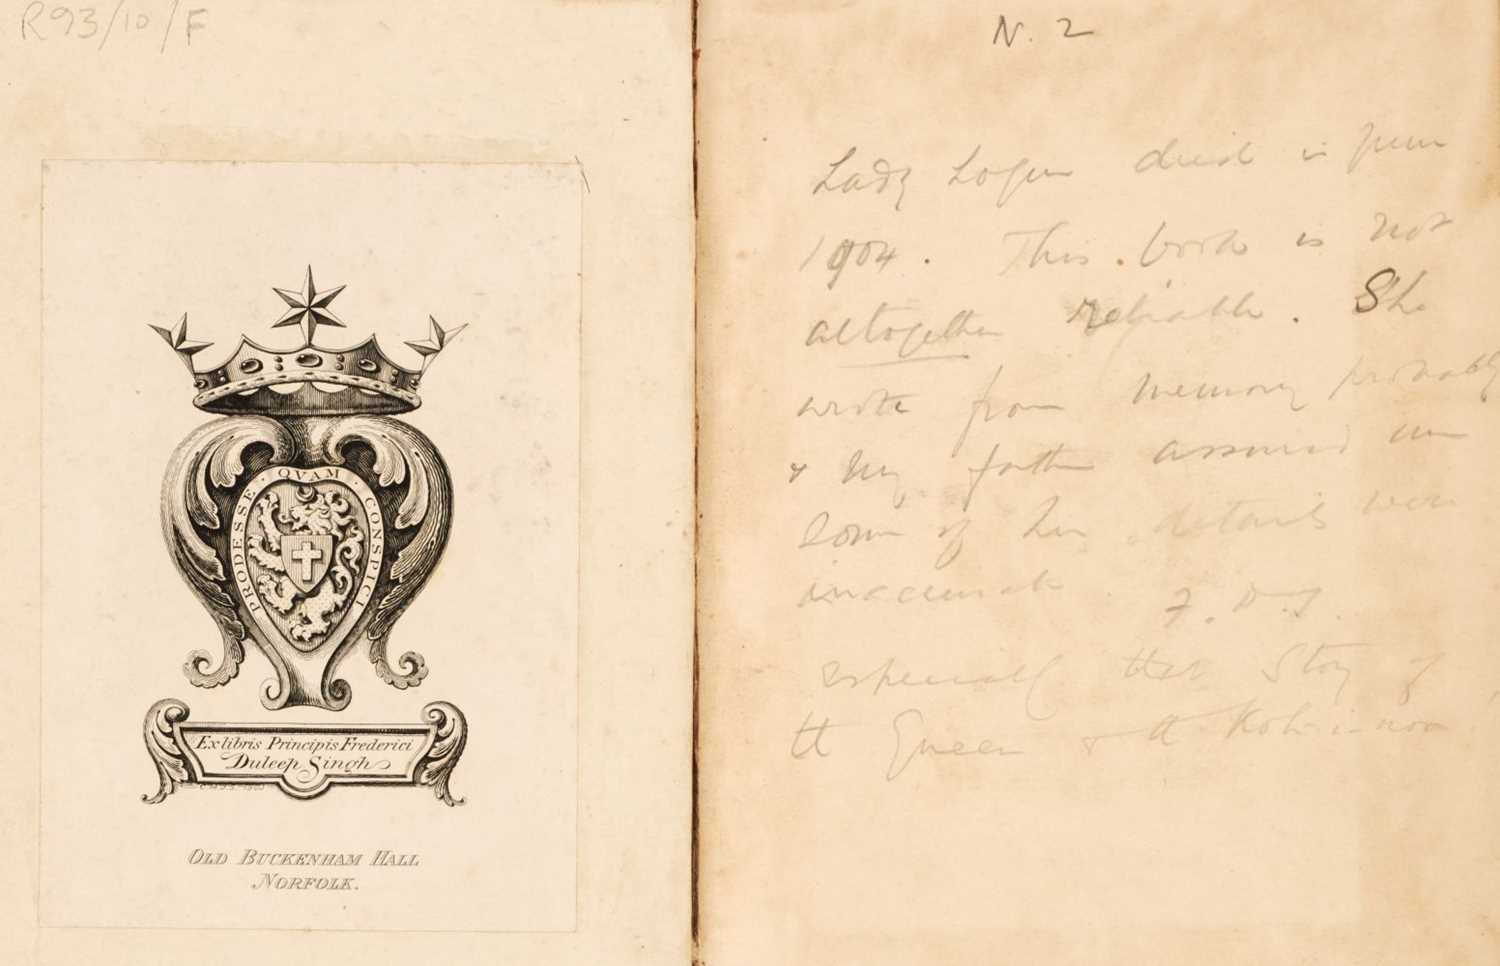 R93/10/F
PRODESSE · QVAM · CONSPICI
Ex libris Principis Frederici
Duleep Singh
OLD BUCKENHAM HALL
NORFOLK.
N. 2
Lady Login died in June
1904. This book is not
altogether reliable. She
wrote from memory probably
& my father assured me
some of her details were
inaccurate F. D. S.
especially that Story of
the Queen & the Koh-i-noor